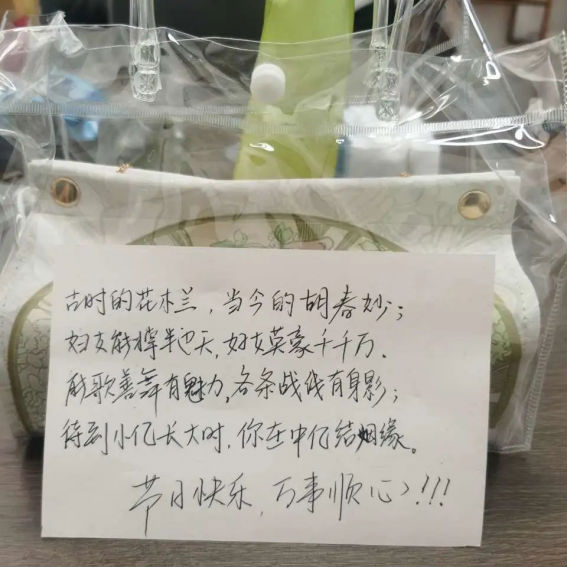 古时的花木兰，当今的胡春妙；
妇女能撑半边天，妇女英豪千千万。
能歌善舞有魅力，各条战线有身影；
待到小亿长大时，你在中亿结姻缘。
节日快乐，万事顺心!!!